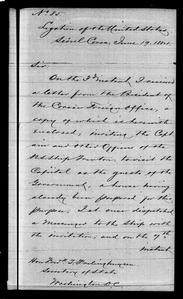 No. 85.
Legation of the United States,
Seoul Corea, June 19, 1884.
Sir:
On the 3d instant, I received
a letter from the President of
the Corean Foreign Office, a
copy of which is herewith
enclosed, inviting the Capt-
ain and other Officers of the
U.S. Ship Trenton, to visit the
Capital as the guests of the
Government, a house having
already been prepared for this
purpose. I at once dispatched
a Messenger to the Ship with
the invitation, and on the 7th
instant
Hon. Fredk. T. Frelinghuysen
Secretary of State
Washington D.C.